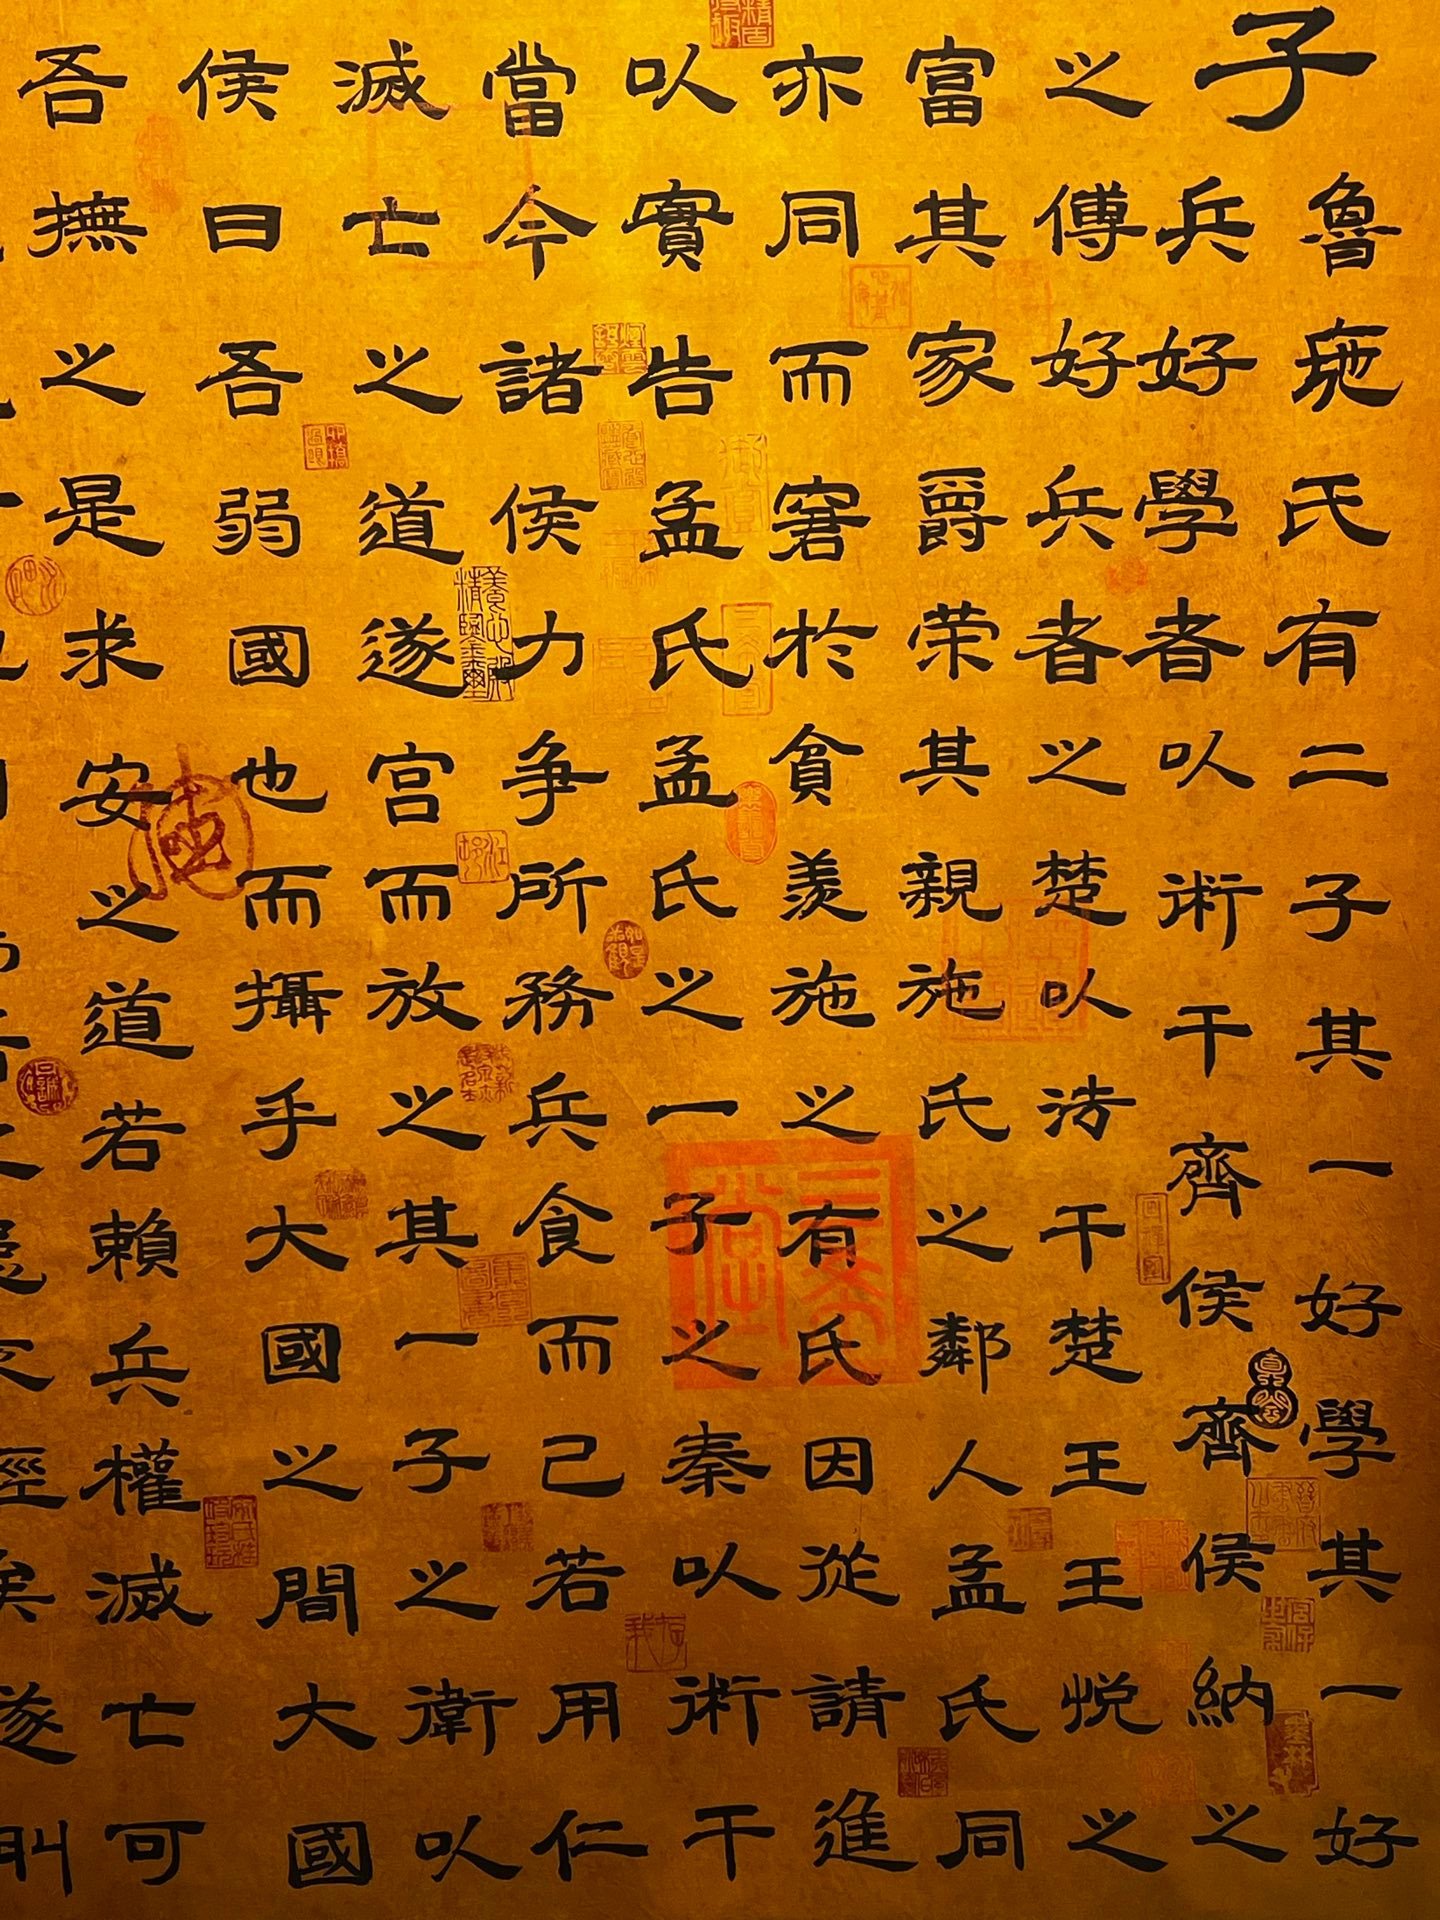 子
魯施氏有二子其一好學其一好
兵好學者以術干齊侯齊侯納之
之傅好兵者之楚以法干楚王王悅之
富其家爵荣其親施氏之鄰人孟氏同
亦同而窘於貧羨施之有氏因從請進
以實告孟氏孟氏之一子之秦以術干
當今諸侯力爭所務兵食而己若用仁
滅亡之道遂宫而放之其一子之衛以
侯曰吾弱國也而攝乎大國之間大國
吾撫之是求安之道若賴兵權滅亡可